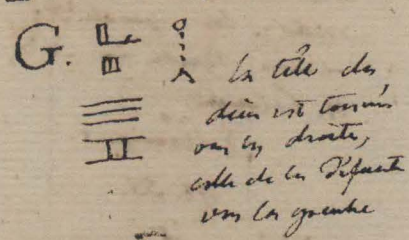 G. la tête du
dieu est tournée
vers la droite,
celle de la défunte
vers la gauche